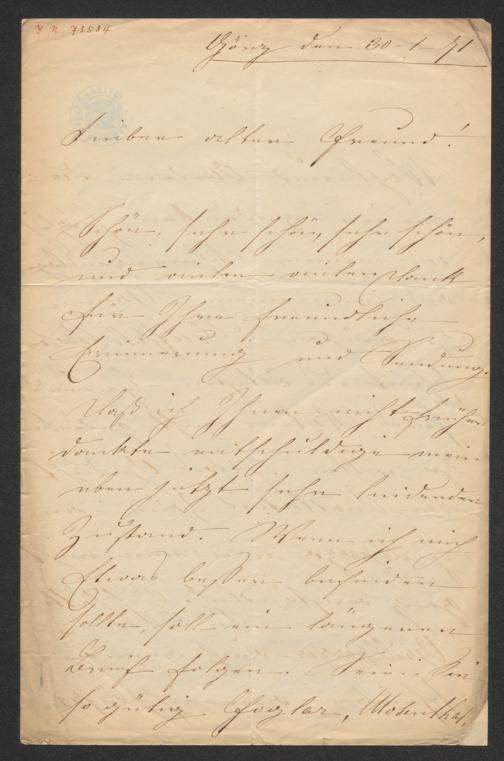 I. N. 73584
Görz den 30-1-71
Lieber alter Freund!
Schön, sehr schön, sehr schön,
und vielen vielen Dank
für Ihre freundliche
Erinnerung und Sendung.
Daß ich Ihnen nicht früher
dankte entschuldige mein
eben jetzt sehr leidender
Zustand. Wenn ich mich
Etwas besser befinden
sollte, soll ein längerer
Brief folgen. Seien Sie
so gütig Foglar, Mosenthal,